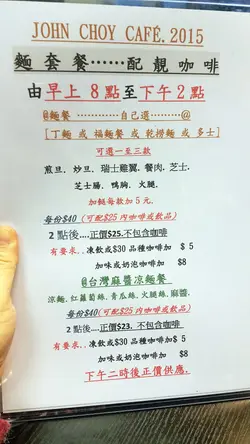 JOHN CHOY CAFÉ. 2015
麵套餐……配靚咖啡
由早上 8 點至下午 2 點
@麵餐 …………自己選……@
[丁麵 或 福麵餐 或 乾撈麵 或 多士]
可選一至三款
煎旦. 炒旦. 瑞士雞翼. 餐肉. 芝士.
芝士腸. 鴨胸. 火腿.
加餸每款加 5 元.
每份$40 (可配$25 內咖啡或飲品)
2 點後....正價$25.不包含咖啡
有要求.. 凍飲或$30 品種咖啡加 $ 5
加味或奶泡咖啡加 $8
@台灣麻醬凉麵餐
涼麵. 紅蘿蔔絲. 青瓜絲. 火腿絲. 麻醬.
每份$40(可配$25 內咖啡或飲品)
2 點後....正價$23. 不包含咖啡
有要求.. 凍飲或$30 品種咖啡加 $ 5
加味或奶泡咖啡加 $8
下午二時後正價供應.